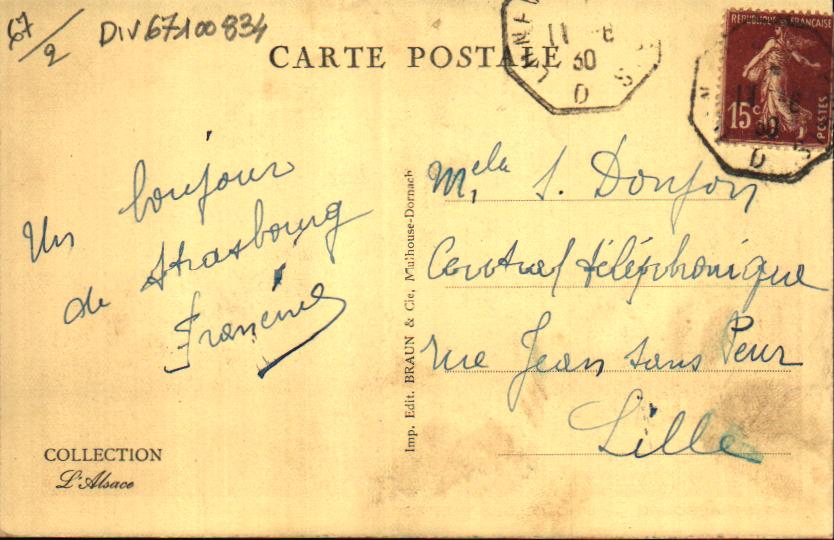 67/2
DIV67100834
CARTE POSTALE
11 - 6
30
D
RÉPUBLIQUE FRANÇAISE
15c
POSTES
11 - 6
30
D
Un bonjour
de Strasbourg
Francine
COLLECTION
L'Alsace
Imp. Edit. BRAUN & Cie, Mulhouse-Dornach
Melle S. Donjon
Central téléphonique
rue Jean sans Peur
Lille